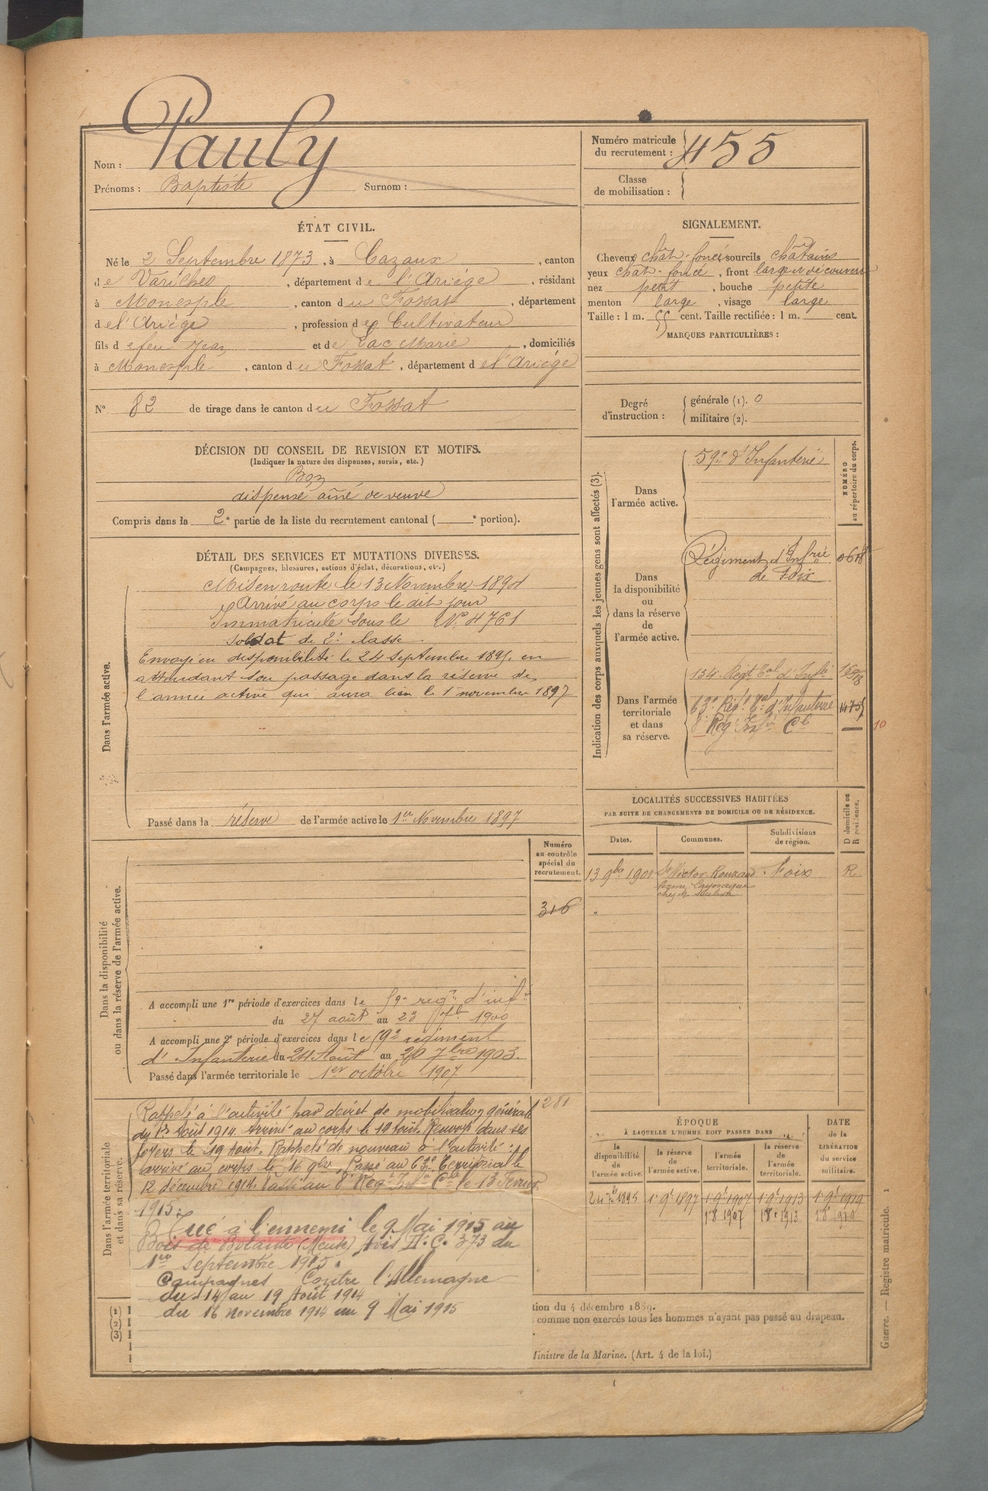 Nom : Pauly
Prénoms : Baptiste Surnom :
Numéro matricule du recrutement : 455
Classe de mobilisation :
ÉTAT CIVIL.
Né le 2 Septembre 1873, à Cazaux, canton
de Varilhes, département de l'Ariège, résidant
à Monesple, canton du Fossat, département
de l'Ariège, profession de Cultivateur
fils de feu Jean et de Lac Marie, domiciliés
à Monesple, canton du Fossat, département de l'Ariège
N° 82 de tirage dans le canton du Fossat
SIGNALEMENT.
Cheveux chât. foncé sourcils châtains
yeux chât. foncé, front large et découvert
nez petit, bouche petite
menton large, visage large
Taille : 1 m. 55 cent. Taille rectifiée : 1 m. cent.
MARQUES PARTICULIÈRES :
Degré d'instruction : générale (1). 0
militaire (2).
DÉCISION DU CONSEIL DE REVISION ET MOTIFS.
(Indiquer la nature des dispenses, sursis, etc.)
Bon
dispensé aîné de veuve
Compris dans la 2e partie de la liste du recrutement cantonal ( e portion).
DÉTAIL DES SERVICES ET MUTATIONS DIVERSES.
(Campagnes, blessures, actions d'éclat, décorations, etc.)
Dans l'armée active.
Mis en route le 13 Novembre 1894
Arrivé au corps le dit jour
Immatriculé sous le N° 4761
Soldat de 2e classe.
Envoyé en disponibilité le 24 septembre 1895, en
attendant son passage dans la réserve de
l'armée active qui aura lieu le 1 novembre 1897
Passé dans la réserve de l'armée active le 1er Novembre 1897
Indication des corps auxquels les jeunes gens sont affectés (3).
NUMÉRO au répertoire du corps.
Dans l'armée active.
59e d'Infanterie
Dans la disponibilité ou dans la réserve de l'armée active.
Régiment d'Infrie
de Foix
Dans l'armée territoriale et dans sa réserve.
134e Régt Tal d'Infie
63e Régt Tal d'Infanterie
8e Régt Infie Cle
10
LOCALITÉS SUCCESSIVES HABITÉES
PAR SUITE DE CHANGEMENTS DE DOMICILE OU DE RÉSIDENCE.
Dates. Communes. Subdivisions de région. D domicile ou R résidence.
13 9bre 1901 St Victor Rouzaud Foix R
Numéro au contrôle spécial du recrutement.
316
Dans la disponibilité ou dans la réserve de l'armée active.
A accompli une 1re période d'exercices dans le 59e régt d'infie
du 27 août au 23 7bre 1900
A accompli une 2e période d'exercices dans le 59e régiment
d'Infanterie du 24 Août au 20 7bre 1903.
Passé dans l'armée territoriale le 1er octobre 1907
1281
Dans l'armée territoriale et dans sa réserve.
Rappelé à l'activité par décret de mobilisation générale
du 1er Août 1914. Arrivé au corps le 14 Août. Renvoyé dans ses
foyers le 19 Août. Rappelé de nouveau à l'activité :
arrivé au corps le 16 9bre. Passé au 63e Territorial le
12 décembre 1914. Passé au 8e Rég. Infie Cle le 18 Février
1915.
Tué à l'ennemi le 9 Mai 1915 au
Bois de Bolante (Meuse) Avis H. C. 373 du
1er Septembre 1915.
Campagnes Contre l'Allemagne
du 14 au 19 Août 1914
du 16 Novembre 1914 au 9 Mai 1915
ÉPOQUE
À LAQUELLE L'HOMME DOIT PASSER DANS
la disponibilité de l'armée active. la réserve de l'armée active. l'armée territoriale. la réserve de l'armée territoriale.
DATE de la LIBÉRATION du service militaire.
24 7bre 1895 1 9bre 1897 1 9bre 1907 1 9bre 1913 1 9bre 1919
1 8bre 1907 1 8bre 1913 1 8bre 1919
tion du 4 décembre 1889.
comme non exercés tous les hommes n'ayant pas passé au drapeau.
Ministre de la Marine. (Art. 4 de la loi.)
(1)
(2)
(3)
Guerre. — Registre matricule. 1